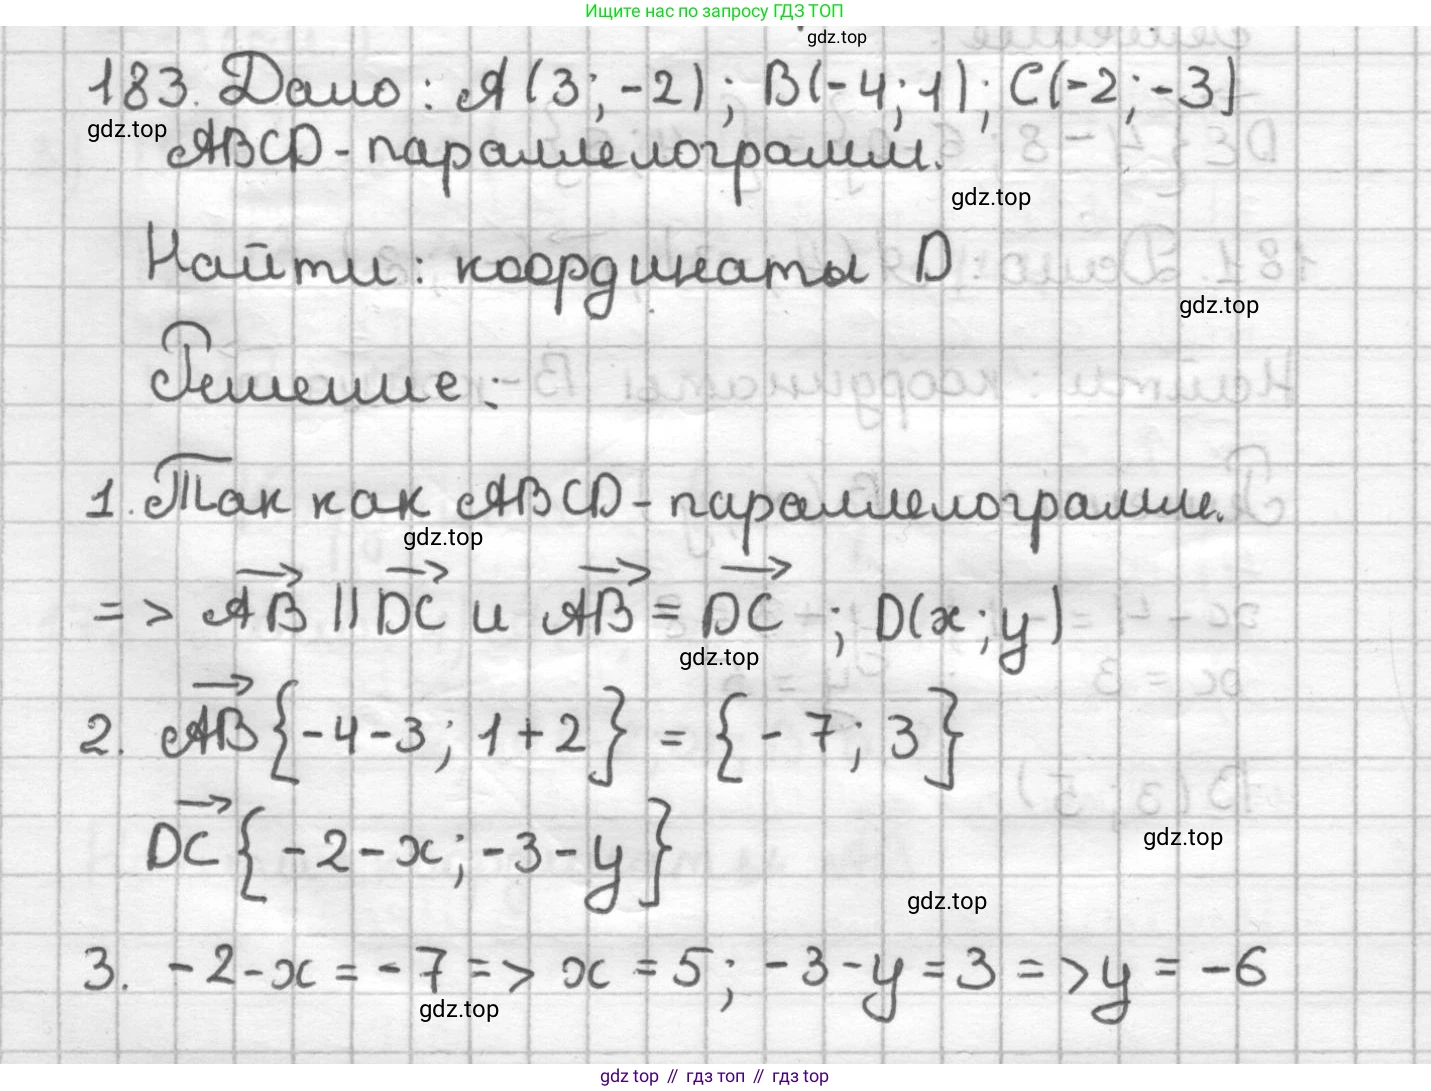 Ищите нас по запросу ГДЗ ТОП
gdz.top
183. Дано: A(3; -2); B(-4; 1); C(-2; -3)
gdz.top
ABCD - параллелограмм.
gdz.top
Найти: координаты D
gdz.top
Решение:
1. Так как ABCD - параллелограмм.
gdz.top
=> →AB || →DC и →AB = →DC; D(x; y)
gdz.top
2. →AB {-4-3; 1+2} = {-7; 3}
→DC {-2-x; -3-y}
gdz.top
gdz.top
3. -2-x = -7 => x = 5; -3-y = 3 => y = -6
gdz.top
gdz top // гдз топ // гдз top